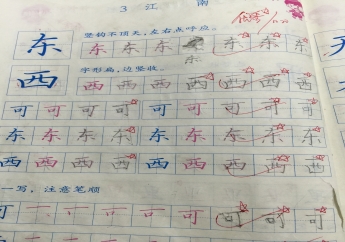 3 江南
竖钩不顶天,左右点呼应。
东 东 东 东 东 东 东 东
东
字形扁,边竖收。
西 西 西 西 西 西 西 西 西
可 可 可 可 可 可 可 可 可
东 东 东 东 东 东 东 东 东
西 西 西 西 西 西 西 西 西
一写,注意笔顺
可 一 可 可 可 可